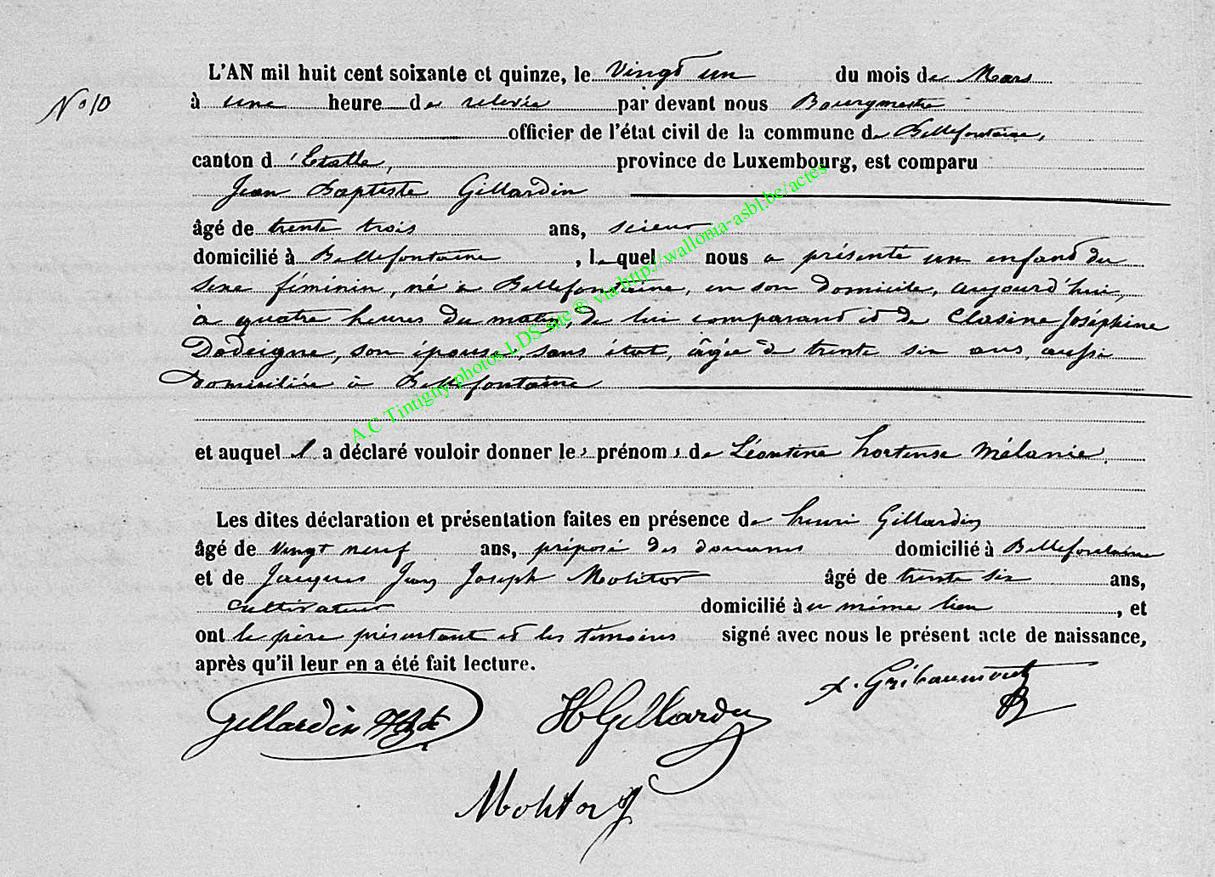 L'AN mil huit cent soixante et quinze, le Vingt un du mois de Mars
N° 10
à une heure de relevée par devant nous Bourgmestre
officier de l'état civil de la commune de Bellefontaine,
canton d'Etalle, province de Luxembourg, est comparu
Jean Baptiste Gillardin
âgé de trente trois ans, scieur
domicilié à Bellefontaine, lequel nous a présenté un enfant du
sexe féminin, né à Bellefontaine, en son domicile, aujourd'hui,
à quatre heures du matin, de lui comparant et de Clasine Joséphine
Dodeigne, son épouse, sans état, âgée de trente six ans, aussi
domiciliée à Bellefontaine
et auquel il a déclaré vouloir donner les prénoms de Léontine hortense Mélanie.
Les dites déclaration et présentation faites en présence de henri Gillardin
âgé de vingt neuf ans, préposé des douanes domicilié à Bellefontaine
et de Jacques Jean Joseph Molitor âgé de trente six ans,
cultivateur domicilié au même lieu, et
ont le père présentant et les témoins signé avec nous le présent acte de naissance,
après qu'il leur en a été fait lecture.
Gillardin JBte HGillardin
Molitor JJ
A.C Tintigny photos LDS site ® via http://wallonia-asbl.be/actes